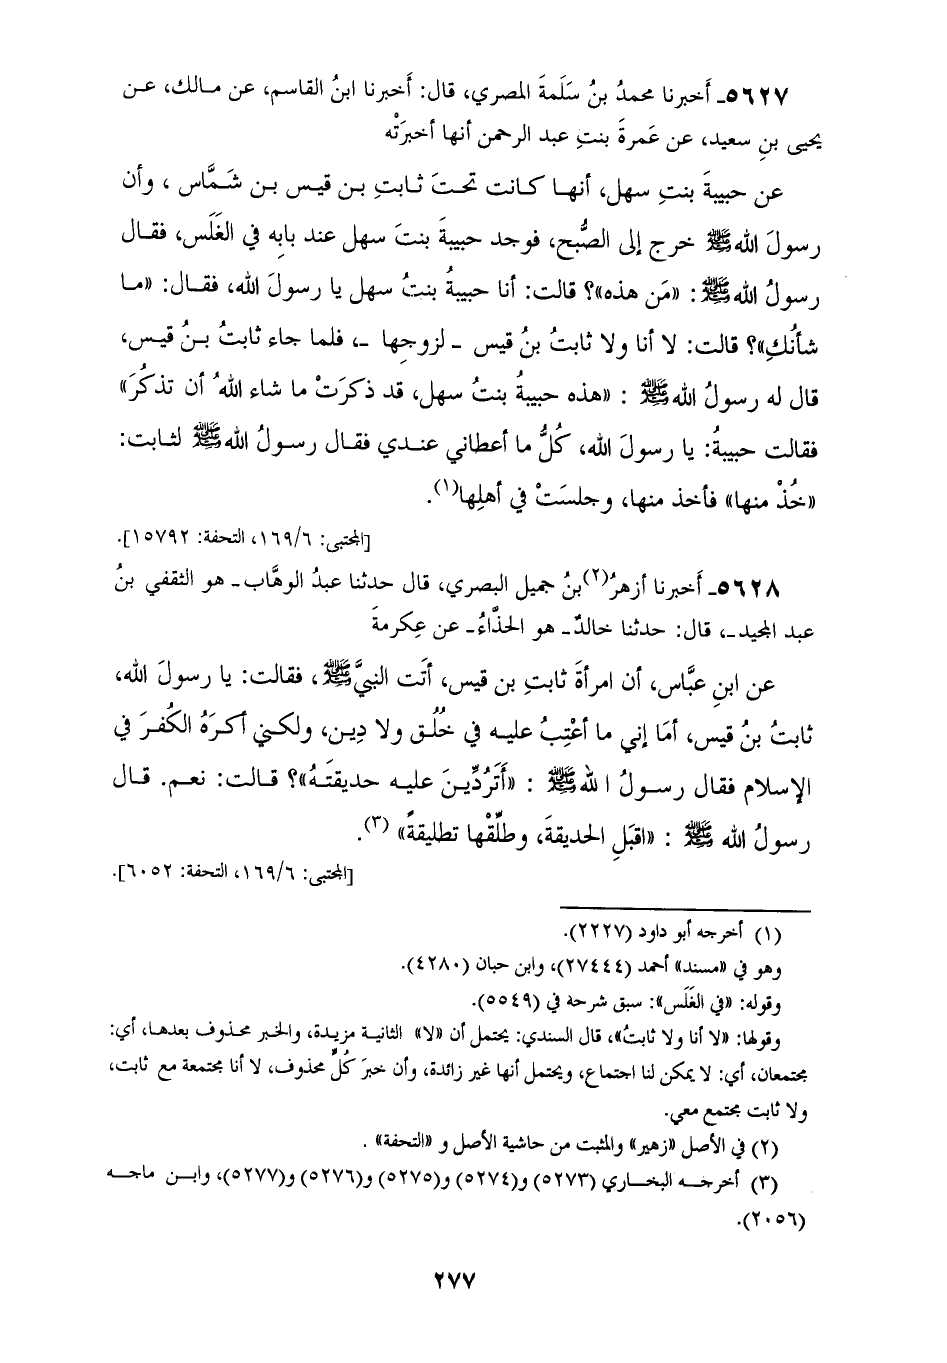 ٥٦٢٧ـ أَخبرنا محمدُ بنُ سَلَمَةَ المصري، قال: أَخبرنا ابنُ القاسم، عن مـالك، عـن
يحيى بنِ سعيد، عن عَمرةَ بنتِ عبد الرحمن أنها أخبرَتْه
عن حبيبةَ بنتِ سهل، أنهـا كـانت تحـتَ ثـابتِ بـن قيـس بـن شـمَّاس ، وأن
رسولَ اللهﷺ خرج إلى الصُّبح، فوجد حبيبةَ بنتَ سهل عند بابِه في الغَلَس، فقـال
رسولُ اللهﷺ: «مَن هذه»؟ قالت: أنا حبيبةُ بنتُ سهل يا رسولَ الله، فقـال: «مـا
شأنُكِ»؟ قالت: لا أنا ولا ثابتُ بنُ قيس ـ لزوجِها ـ، فلما جاء ثابتُ بـنُ قيـس،
قال له رسولُ اللهﷺ : «هذه حبيبةُ بنتُ سهل، قد ذكرَتْ ما شاء اللهُ أن تذكُرَ»
فقالت حبيبةُ: يا رسولَ الله، كُلُّ ما أعطاني عنـدي فقـال رسـولُ اللهﷺ لثـابت:
«خُذْ منها» فأخذ منها، وجلسَتْ في أهلِها(١).
[المجتبى: ١٦٩/٦، التحفة: ١٥٧٩٢].
٥٦٢٨ـ أَخبرنا أزهرُ(٢)بنُ جميل البصري، قال حدثنا عبدُ الوهَّاب ـ هو الثقفي بنُ
عبد المجيد ـ، قال: حدثنا خالدٌ ـ هو الحذَّاءُ ـ عن عِكرمةَ
عن ابنِ عبَّاس، أن امرأةَ ثابتِ بن قيس، أتَت النبيَّﷺ، فقالت: يا رسولَ الله،
ثابتُ بنُ قيس، أمَا إني ما أعْتِبُ عليـه في خُلُـق ولا دِيـن، ولكـني أكـرَهُ الكُفـرَ في
الإسلام فقال رسـولُ ا للهﷺ : «أتَرُدِّيـنَ عليـه حديقتَـهُ»؟ قـالت: نعـم. قـال
رسولُ الله ﷺ : «اقبَلِ الحديقةَ، وطلِّقْها تطليقةً» (٣).
[المجتبى: ١٦٩/٦، التحفة: ٦٠٥٢].
(١) أخرجه أبو داود (٢٢٢٧).
وهو في «مسند» أحمد (٢٧٤٤٤)، وابن حبان (٤٢٨٠).
وقوله: «في الغَلَس»: سبق شرحة في (٥٥٤٩).
وقولها: «لا أنا ولا ثابتُ»، قال السندي: يحتمل أن «لا» الثانية مزيدة، والخبر محذوف بعدهـا، أي:
مجتمعان، أي: لا يمكن لنا اجتماع، ويحتمل أنها غير زائدة، وأن خبرَ كُلٍّ محذوف، لا أنا مجتمعة مع ثابت،
ولا ثابت مجتمع معي.
(٢) في الأصل «زهير» والمثبت من حاشية الأصل و «التحفة» .
(٣) أخرجـه البخـاري (٥٢٧٣) و(٥٢٧٤) و(٥٢٧٥) و(٥٢٧٦) و(٥٢٧٧)، وابـن ماجـه
(٢٠٥٦).
٢٧٧